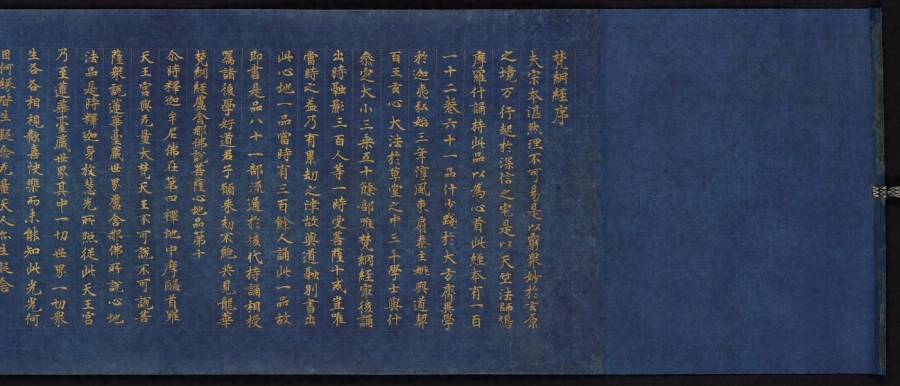 梵網經序
夫宗本湛然理不可易是以窮聚妙於玄原
之境万行起於深信之宅是以天竺法師鳩
摩羅什誦持此品以為心首此經本有一百
一十二卷六十一品什少踐於大方齊異學
於迦夷弘始三年淳風東扇秦主姚興道契
百王玄心大法於草堂之中三千學士與什
参定大小二乘五十餘部唯梵網經㝡後誦
出時融影三百人等一時受菩薩十戒豈唯
當時之益乃有累劫之津故與道融別書出
此心地一品當時有三百餘人誦此一品故
即書是品八十一部流通於後代持誦相授
囑諸後學好道君子願來劫不絕共見龍華
梵網經盧舍那佛說菩薩心地品第十
尒時釋迦牟尼佛在第四禪地中摩醯首羅
天王宮與无量大梵天王不可說不可說菩
薩衆說蓮華臺藏世界盧舍那佛所說心地
法品是時釋迦身放慧光所照從此天王宮
乃至蓮華臺藏世界其中一切世界一切衆
生各各相視歡喜快樂而未能知此光光何
因何緣皆生疑念无量天人尒生疑念